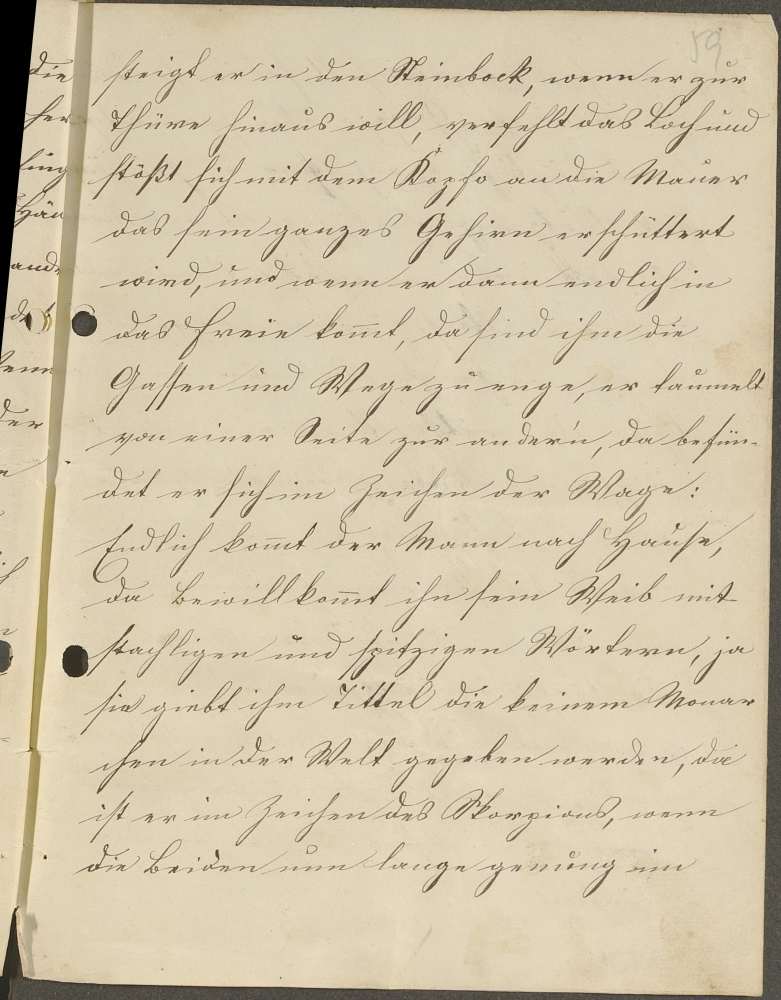 59
steigt er in den Steinbock, wenn er zur
Thüre hinaus will, verfehlt das Loch und
stößt sich mit dem Kopfe an die Mauer
das sein ganzes Gehirn erschüttert
wird, und wenn er dann endlich in
das Freie kom̄t, da sind ihm die
Gassen und Wege zu enge, er taumelt
von einer Seite zur ander'n, da befün-
det er sich im Zeichen der Wage:
Endlich kom̄t der Mann nach Hause,
da bewillkom̄t ihn sein Weib mit
stachligen und spitzigen Wörtern, ja
sie giebt ihm Tittel die keinem Monar
chen in der Welt gegeben werden, da
ist er im Zeichen des Skorpions, wenn
die Beiden nun lange genung im
die